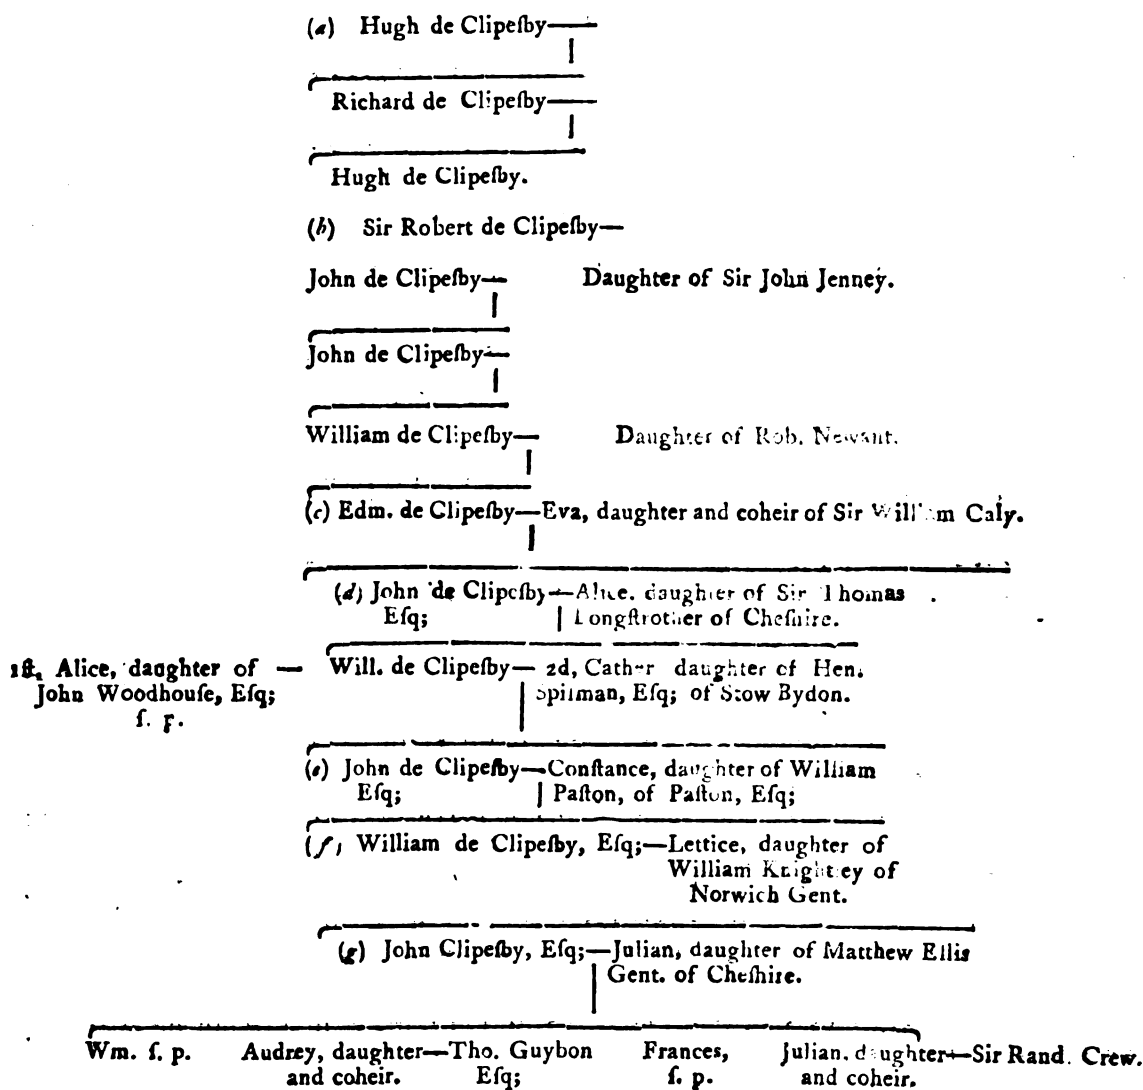 (a) Hugh de Clipeſby—
Richard de Clipeſby—
Hugh de Clipeſby.
(b) Sir Robert de Clipeſby—
John de Clipeſby— Daughter of Sir John Jenney.
John de Clipeſby—
William de Clipeſby— Daughter of Rob. Newant.
(c) Edm. de Clipeſby—Eva, daughter and coheir of Sir William Caly.
(d) John de Clipeſby—Alice, daughter of Sir Thomas
Eſq; Longſtrother of Cheſhire.
1ſt, Alice, daughter of — Will. de Clipeſby— 2d, Cather daughter of Hen.
John Woodhouſe, Eſq; Spilman, Eſq; of Stow Bydon.
ſ. p.
(e) John de Clipeſby—Conſtance, daughter of William
Eſq; Paſton, of Paſton, Eſq;
(f) William de Clipeſby, Eſq;—Lettice, daughter of
William Knightley of
Norwich Gent.
(g) John Clipeſby, Eſq;—Julian, daughter of Matthew Ellis
Gent. of Cheſhire.
Wm. ſ. p. Audrey, daughter—Tho. Guybon Frances, Julian, daughter—Sir Rand. Crew.
and coheir. Eſq; ſ. p. and coheir.